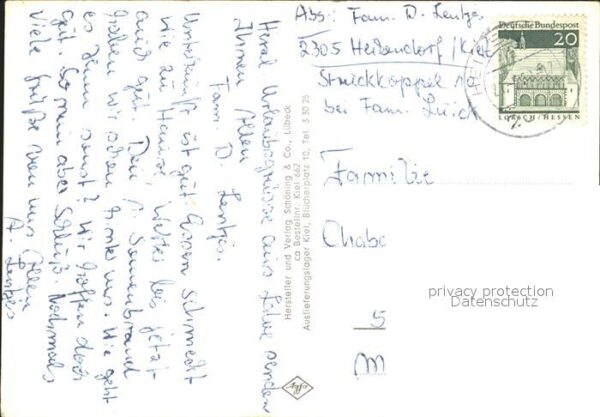 Abs: Fam. D. Lentjes
2305 Heikendorf/Kiel
Struckkoppel 10
bei Fam. Lück
Deutsche Bundespost
20
LORSCH/HESSEN
Familie
privacy protection
Datenschutz
5
M
Herzl. Urlaubsgrüsse aus senden
Ihnen Allen
Fam. D. Lentjes.
Unterkunft ist gut Essen schmeckt
wie zu Hause, Wetter bis jetzt
auch gut. Den 1. Sonnenbrand
haben wir schon hinter uns. Wie geht
es Ihnen sonst? Wir hoffen doch
gut. So nun aber Schluß. Nochmals
viele Grüße von uns Allen
A. Lentjes
Hersteller und Verlag Schöning & Co., Lübeck
ca Bestellnr. Kiel 662
Auslieferungslager Kiel, Blücherplatz 10, Tel. 3 50 25
Agfa